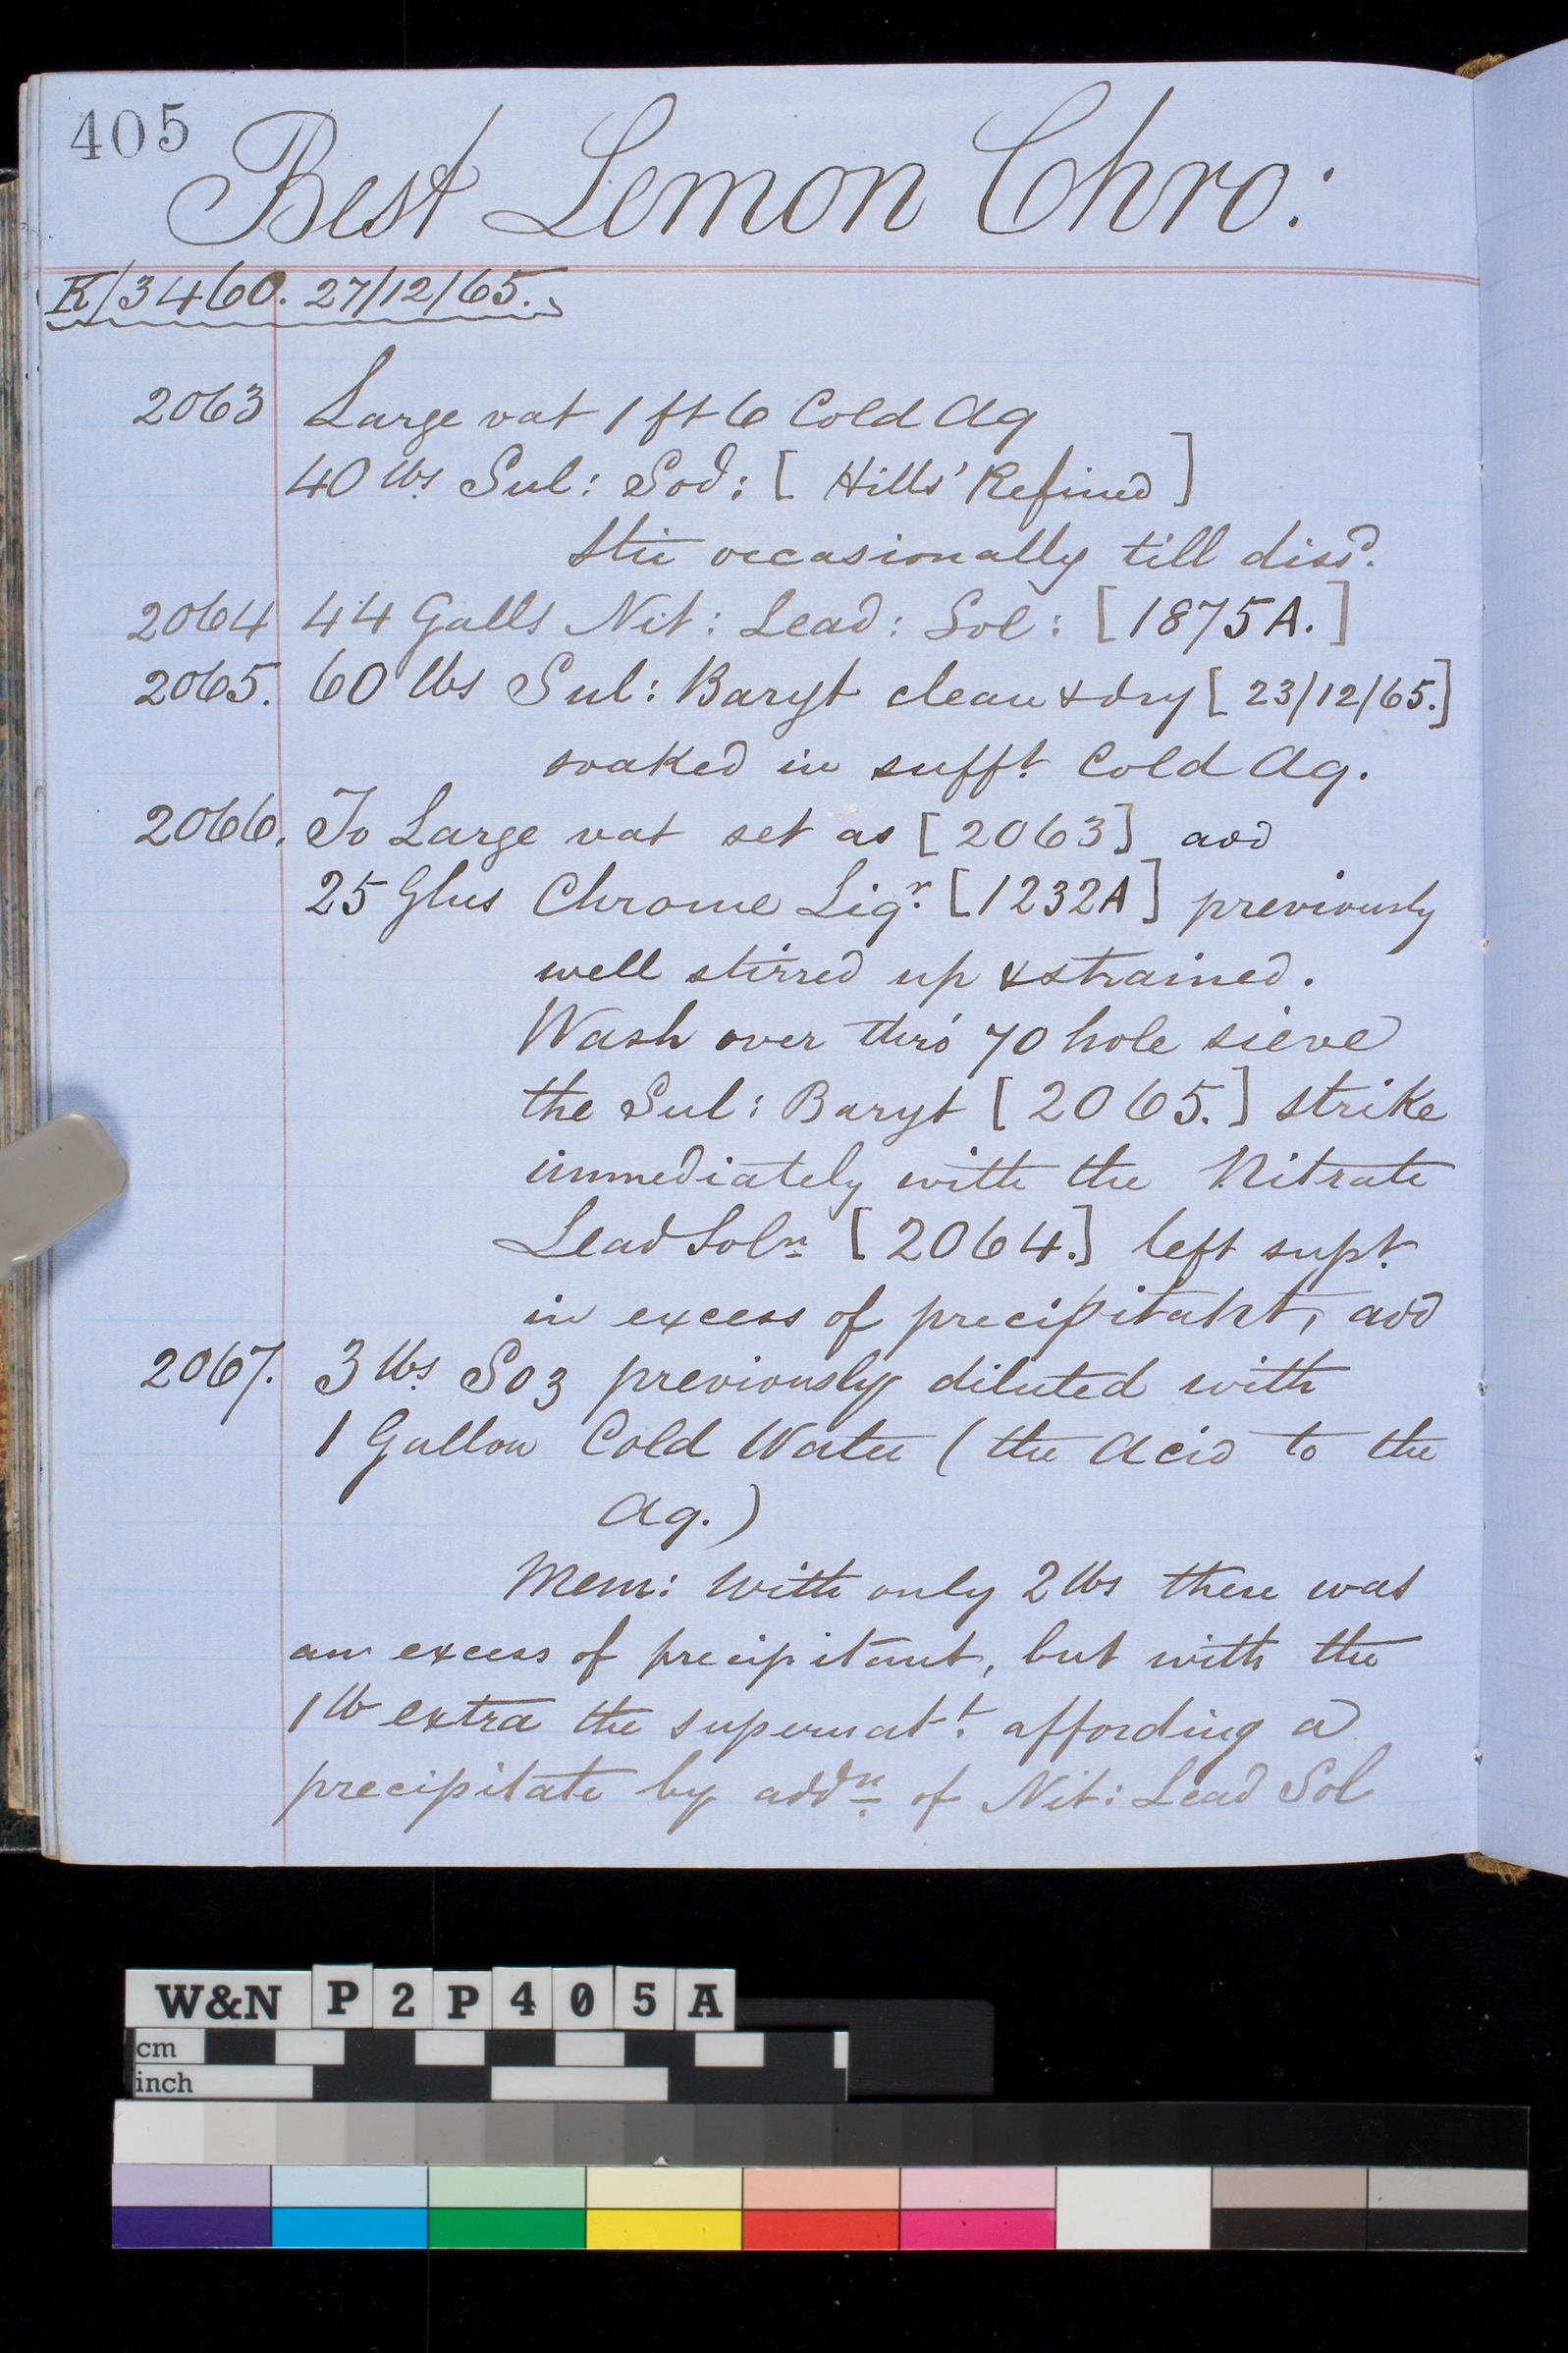 405
Best Lemon Chro:
K/3460. 27/12/65.
2063 Large vat 1 ft 6 Cold Aq
40 lbs Sul: Sod: [ Hills' Refined ]
Stir occasionally till dissd.
2064 44 Galls Nit: Lead: Sol: [1875A.]
2065. 60 lbs Sul: Baryt clean & dry [ 23/12/65.]
soaked in sufft. Cold Aq.
2066. To Large vat set as [2063] add
25 Glns Chrome Liqr. [1232A] previously
well stirred up & strained.
Wash over thro' 70 hole sieve
the Sul: Baryt [2065.] strike
immediately with the Nitrate
Lead Soln [2064.] left supt.
in excess of precipitant, add
2067. 3 lbs. SO3 previously diluted with
1 Gallon Cold Water ( the Acid to the
Aq.)
Mem: With only 2 lbs there was
an excess of precipitant, but with the
1 lb extra the supernatt. affording a
precipitate by addn. of Nit: Lead Sol
W&N P2P405A
cm
inch